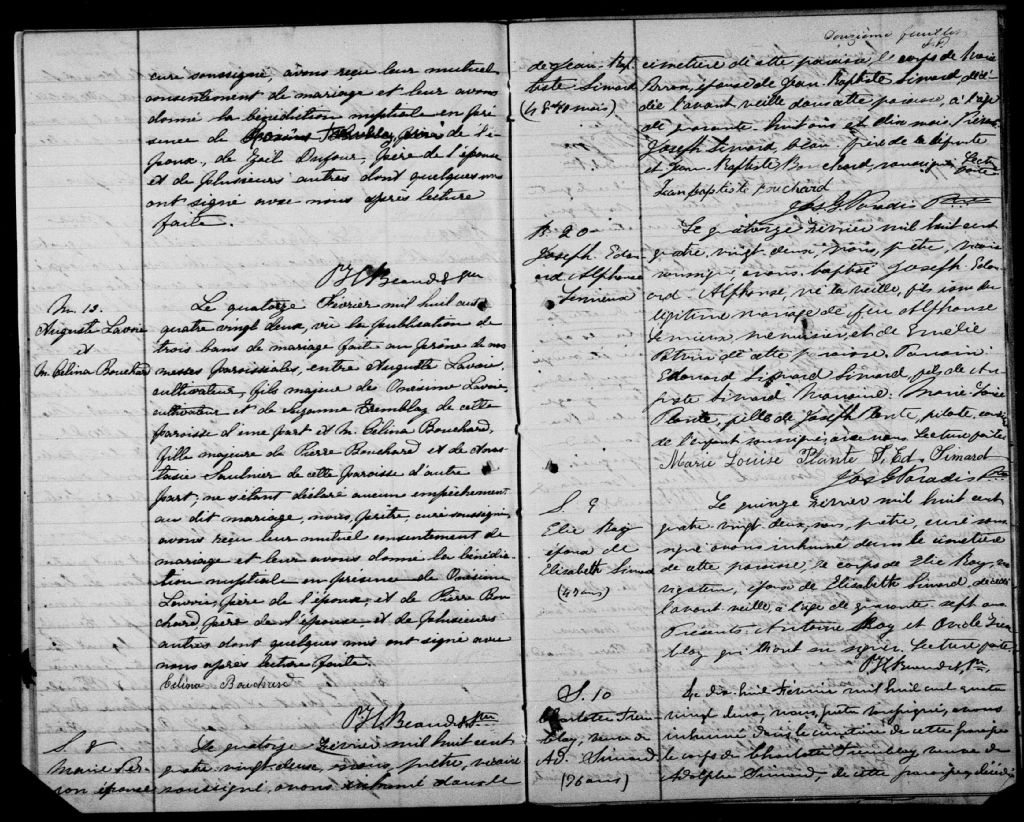 curé soussigné, avons reçu leur mutuel
consentement de mariage et leur avons
donné la bénédiction nuptiale en pré
sence de Tremblay, père de l'é-
poux, de Dufour, père de l'épouse
et de plusieurs autres dont quelques uns
ont signé avec nous après lecture
faite.
M. 12.
Auguste Lavoie
et
M. Célina Bouchard
Le quatorze Février mil huit cent
quatre vingt deux, vu la publication de
trois bans de mariage faite au prône de nos
messes paroissiales, entre Auguste Lavoie,
cultivateur, fils majeur de Onésime Lavoie,
cultivateur et de Suzanne Tremblay de cette
paroisse d'une part et M. Célina Bouchard,
fille majeure de Pierre Bouchard et de Anas-
tasie Saulnier de cette paroisse d'autre
part; ne s'étant déclaré aucun empêchement
au dit mariage, nous, prêtre, curé soussigné,
avons reçu leur mutuel consentement de
mariage et leur avons donné la bénédic
tion nuptiale en présence de Onésime
Lavoie, père de l'époux, et de Pierre Bou
chard, père de l'épouse et de plusieurs
autres dont quelques uns ont signé avec
nous après lecture faite.
Célina Bouchard
S. 8
Marie Per-
ron épouse
Le quatorze Février mil huit cent
quatre vingt deux, nous, prêtre, vicaire
soussigné, avons inhumé dans le
feuillet
de Jean Bap
tiste Simard
(48 ans 10 mois)
cimetière de cette paroisse, le corps de Marie
Perron, épouse de Jean-Baptiste Simard, décé-
dée l'avant veille dans cette paroisse, à l'âge
de quarante huit ans et dix mois. Présents
Joseph Simard, beau-frère de la défunte
et Jean-Baptiste Bouchard, soussigné. Lecture
faite
Jean baptiste bouchard
Jos G Paradis Ptre
B. 20
Joseph Edou-
ard Alphonse
Lemieux
Le quatorze Février mil huit cent
quatre vingt deux, nous, prêtre, vicaire
soussigné, avons baptisé Joseph Edou-
ard Alphonse, né la veille, fils issu du
légitime mariage de feu Alphonse
Lemieux, menuisier, et de Emélie
de cette paroisse. Parrain:
Edouard Simard, fils de
Simard. Marraine: Marie Louise
Plante, fille de Joseph Plante, pilote,
de l'enfant soussignés avec nous. Lecture faite.
Marie Louise Plante J. Ed. Simard
Jos G Paradis Ptre
S. 9
Elie Ray
époux de
Elisabeth Simard
(47 ans)
Le quinze Février mil huit cent
quatre vingt deux, nous, prêtre, curé sous
signé avons inhumé dans le cimetière
de cette paroisse, le corps de Elie Ray, na
vigateur, époux de Elisabeth Simard, décédé
l'avant veille, à l'âge de quarante sept ans
Présents: Antoine Ray et Trem
blay qui n'ont su signer. Lecture faite.
S. 10
Charlotte Trem
blay, veuve de
Ad. Simard
(76 ans)
Le dix huit Février mil huit cent quatre
vingt deux, nous, prêtre soussigné, avons
inhumé dans le cimetière de cette paroisse
le corps de Charlotte Tremblay veuve de
Adolphe Simard, de cette paroisse, décédée